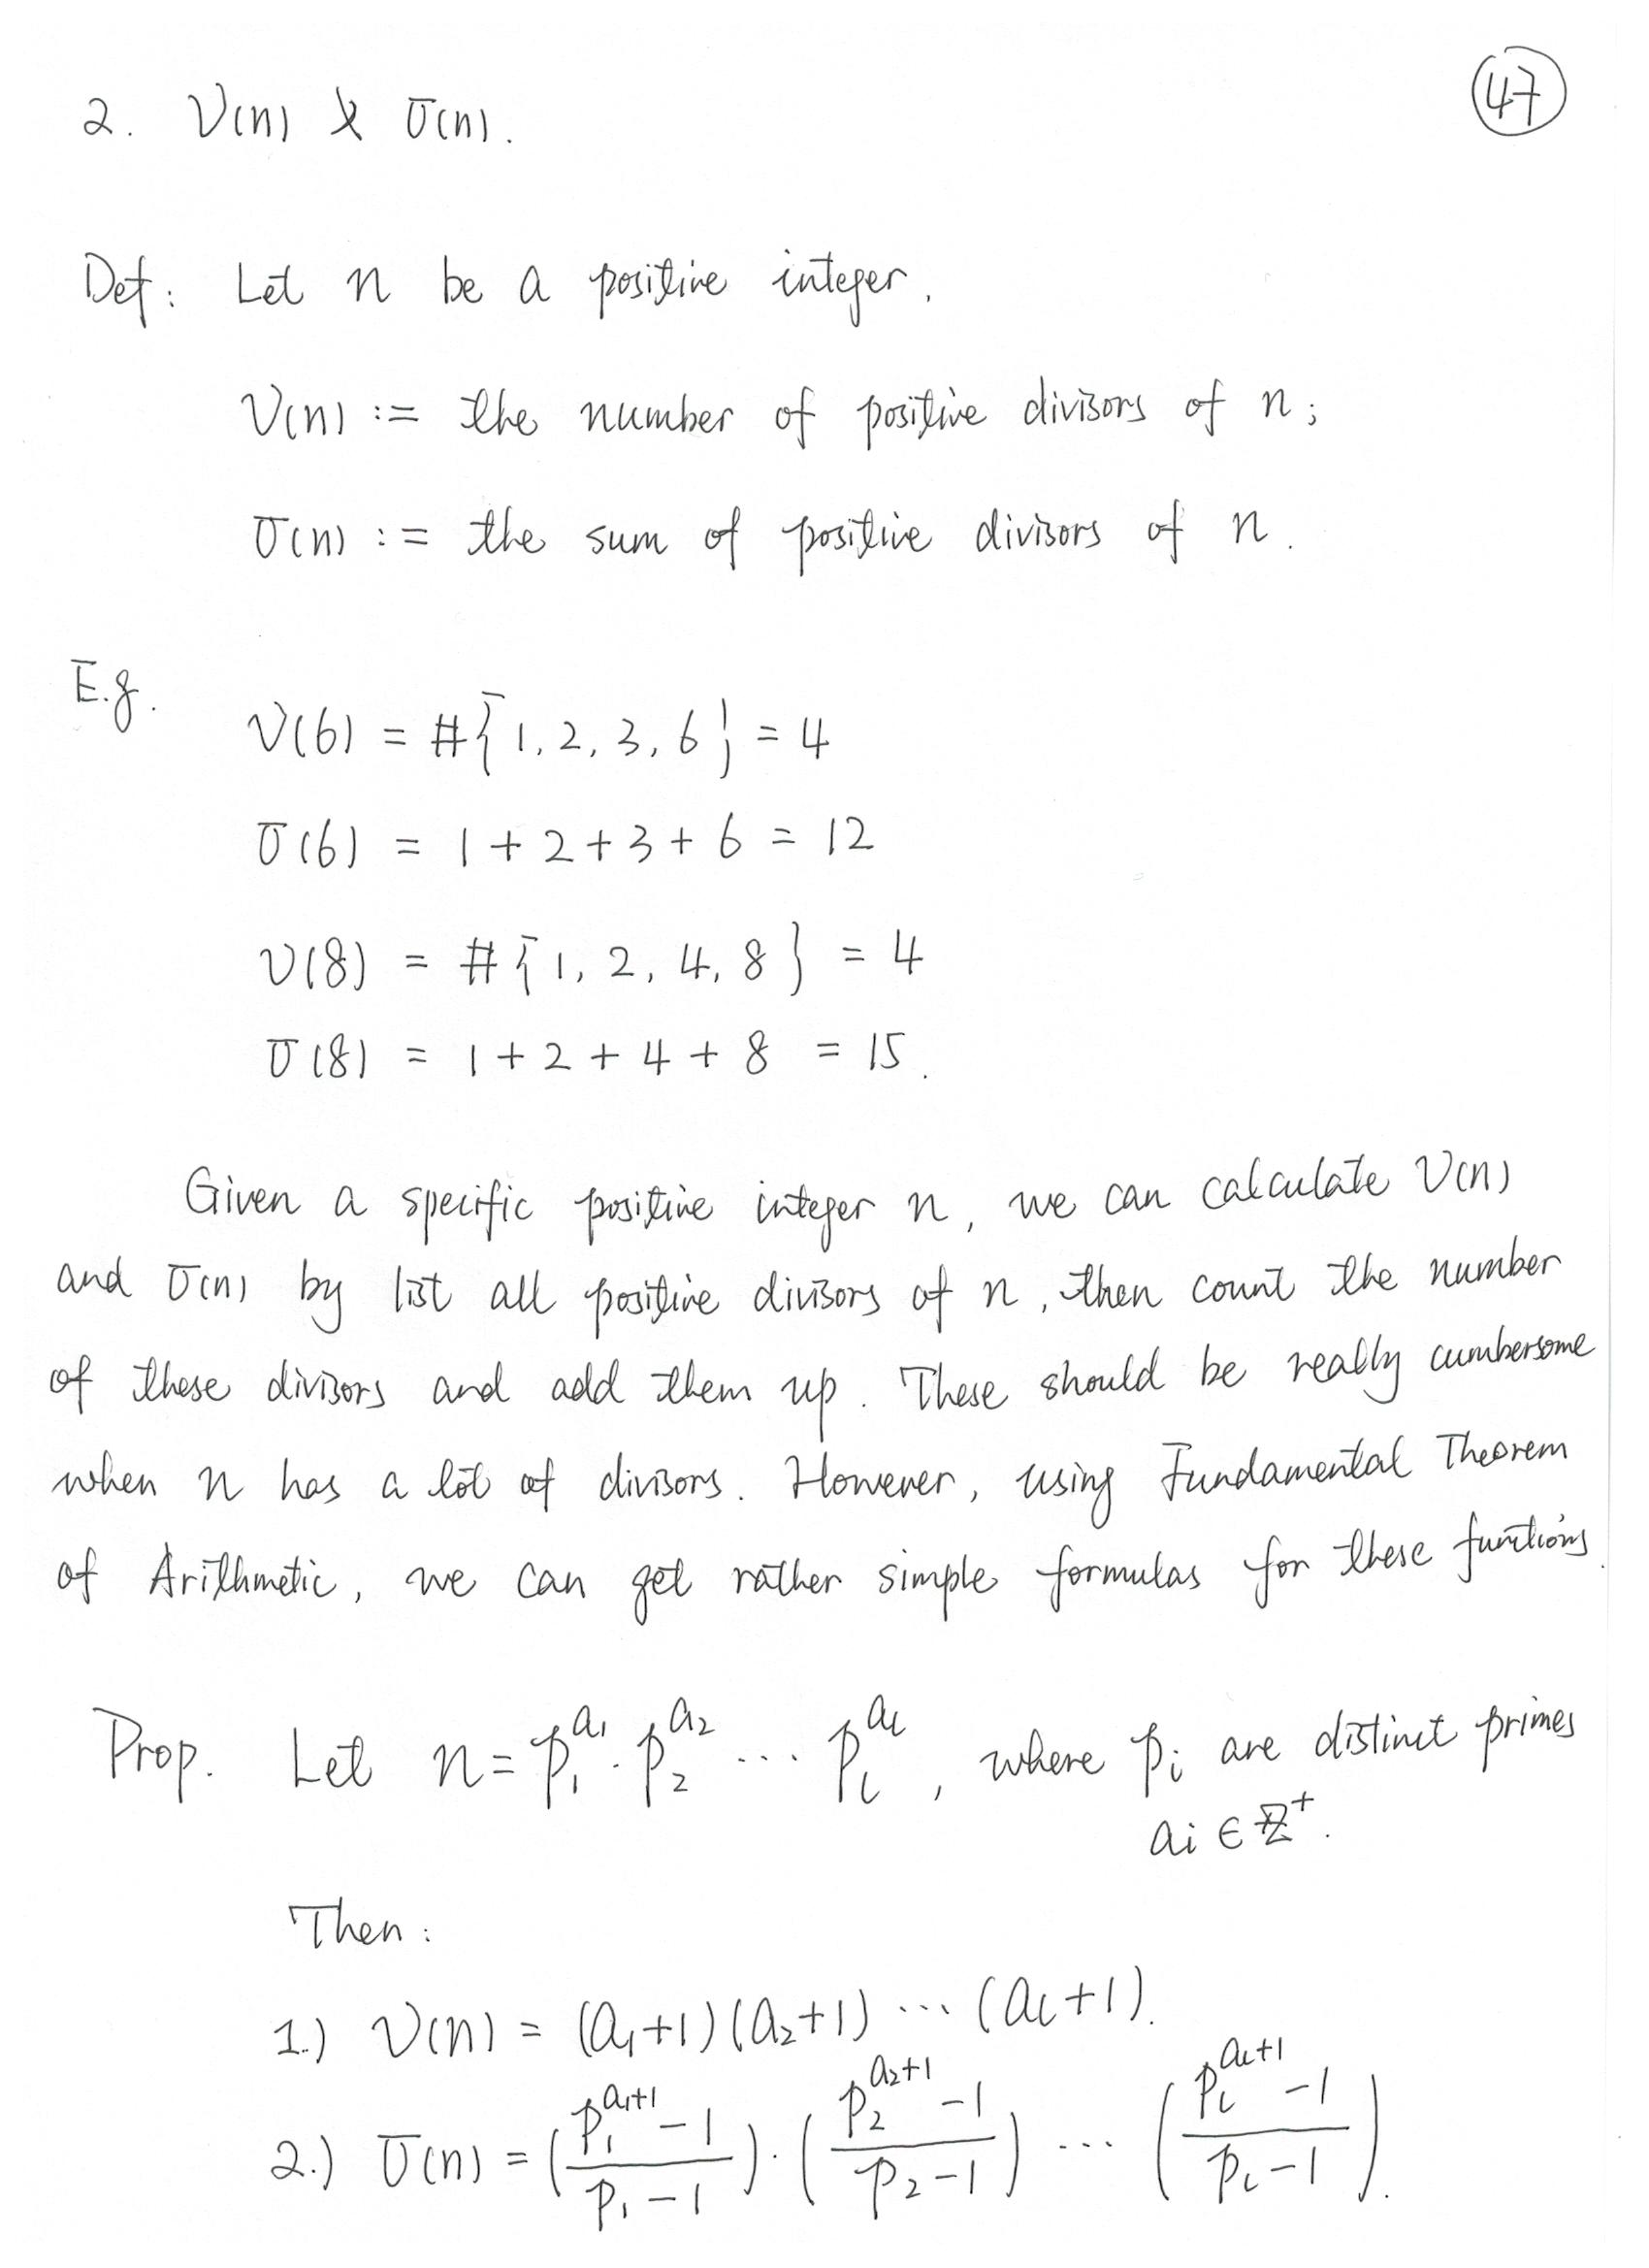 47
2. ν(n) & σ(n).
Def: Let n be a positive integer.
ν(n) := the number of positive divisors of n;
σ(n) := the sum of positive divisors of n.
E.g.
ν(6) = #{1, 2, 3, 6} = 4
σ(6) = 1 + 2 + 3 + 6 = 12
ν(8) = #{1, 2, 4, 8} = 4
σ(8) = 1 + 2 + 4 + 8 = 15.
Given a specific positive integer n, we can calculate ν(n)
and σ(n) by list all positive divisors of n, then count the number
of these divisors and add them up. These should be really cumbersome
when n has a lot of divisors. However, using Fundamental Theorem
of Arithmetic, we can get rather simple formulas for these functions.
Prop. Let n = p₁^{a₁} · p₂^{a₂} ... p_l^{a_l}, where p_i are distinct primes
a_i ∈ ℤ⁺.
Then:
1.) ν(n) = (a₁+1)(a₂+1) ... (a_l+1).
2.) σ(n) = ((p₁^{a₁+1} - 1)/(p₁ - 1)) · ((p₂^{a₂+1} - 1)/(p₂ - 1)) ... ((p_l^{a_l+1} - 1)/(p_l - 1)).